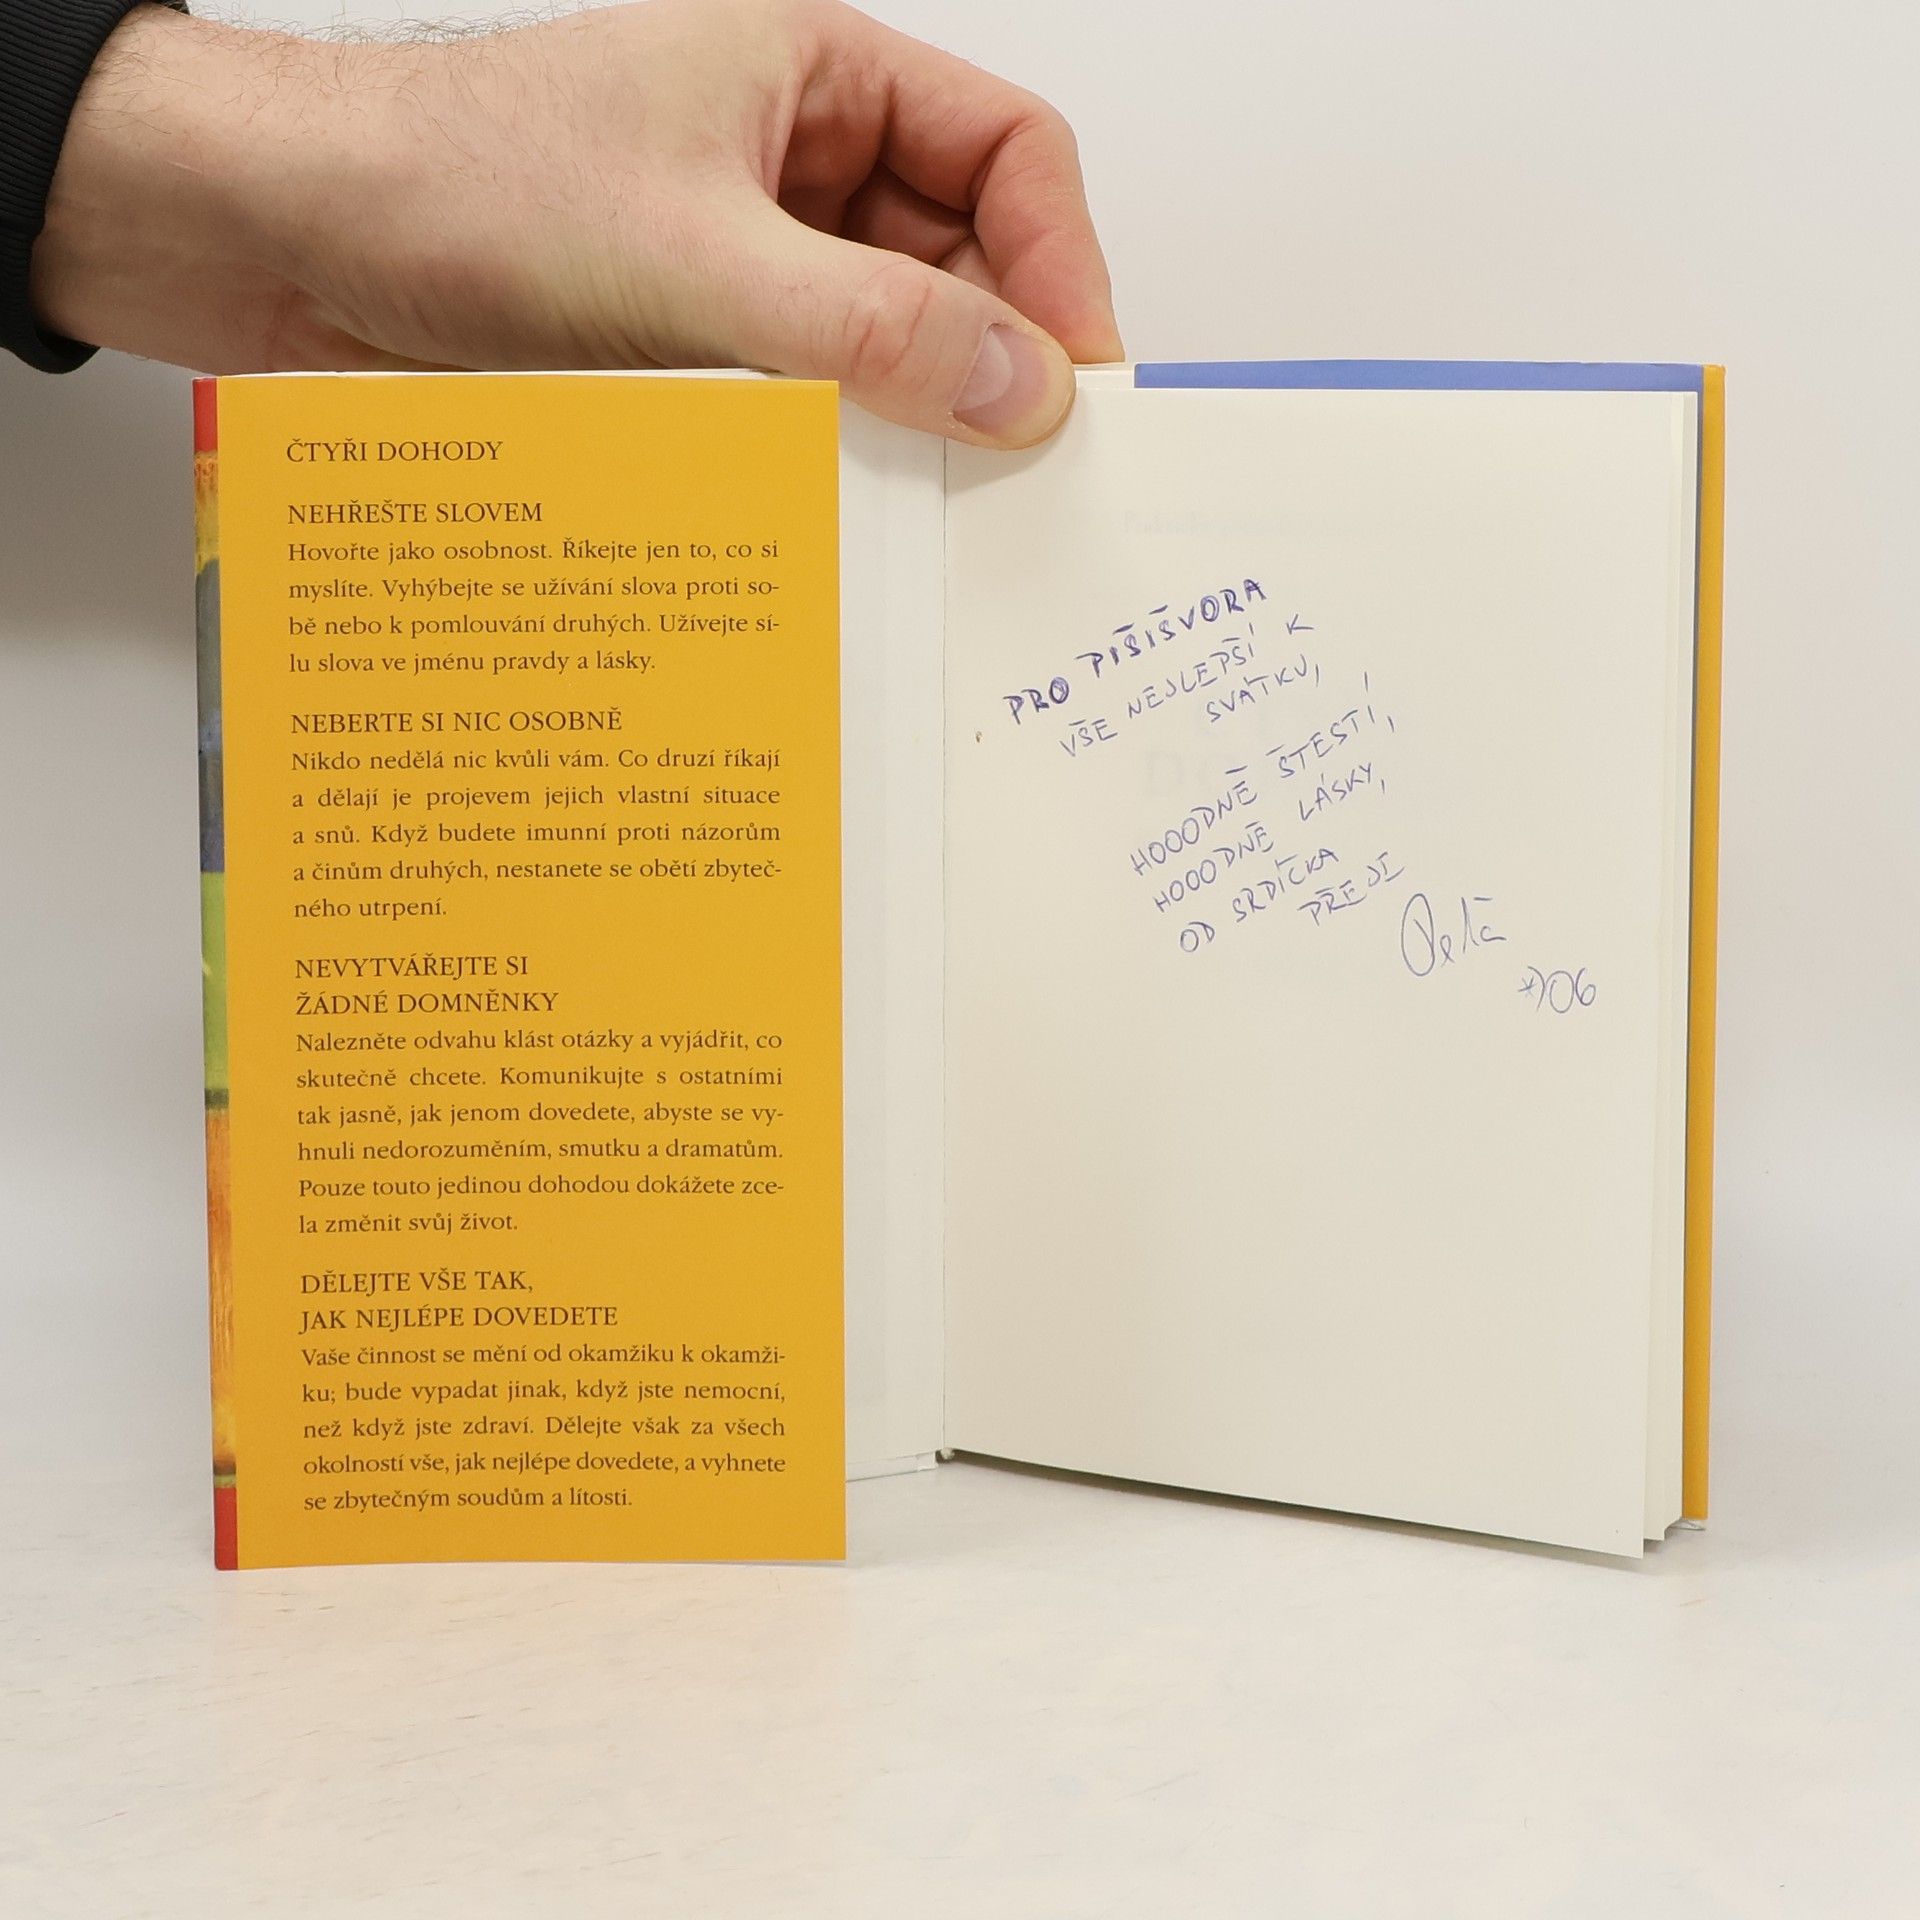 ČTYŘI DOHODY
NEHŘEŠTE SLOVEM
Hovořte jako osobnost. Říkejte jen to, co si
myslíte. Vyhýbejte se užívání slova proti so-
bě nebo k pomlouvání druhých. Užívejte sí-
lu slova ve jménu pravdy a lásky.
NEBERTE SI NIC OSOBNĚ
Nikdo nedělá nic kvůli vám. Co druzí říkají
a dělají je projevem jejich vlastní situace
a snů. Když budete imunní proti názorům
a činům druhých, nestanete se obětí zbyteč-
ného utrpení.
NEVYTVÁŘEJTE SI
ŽÁDNÉ DOMNĚNKY
Nalezněte odvahu klást otázky a vyjádřit, co
skutečně chcete. Komunikujte s ostatními
tak jasně, jak jenom dovedete, abyste se vy-
hnuli nedorozuměním, smutku a dramatům.
Pouze touto jedinou dohodou dokážete zce-
la změnit svůj život.
DĚLEJTE VŠE TAK,
JAK NEJLÉPE DOVEDETE
Vaše činnost se mění od okamžiku k okamži-
ku; bude vypadat jinak, když jste nemocní,
než když jste zdraví. Dělejte však za všech
okolností vše, jak nejlépe dovedete, a vyhnete
se zbytečným soudům a lítosti.
PRO PIŠIŠVORA
VŠE NEJLEPŠÍ K
SVÁTKU,
HOOODNĚ ŠTESTÍ,
HOOODNĚ LÁSKY,
OD SRDÍČKA
PŘEJE
Peťa
06